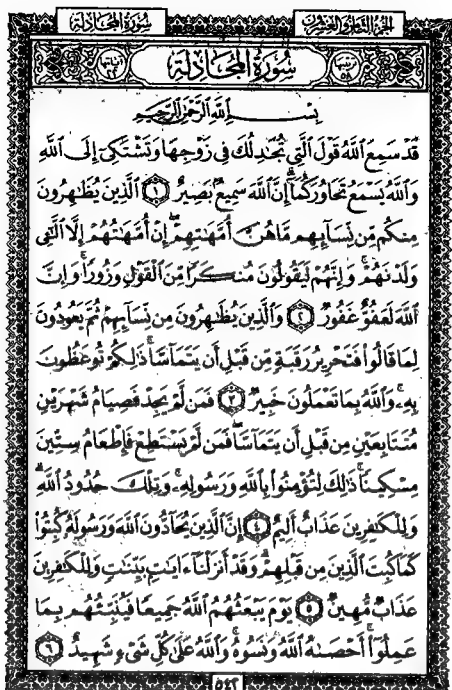 سُورَةُ المُجَادلة
الجُزْءُ الثَّامِنُ وَالعِشْرُونَ
سُورَةُ المُجَادلة
بِسْمِ ٱللَّهِ ٱلرَّحْمَٰنِ ٱلرَّحِيمِ
قَدْ سَمِعَ ٱللَّهُ قَوْلَ ٱلَّتِى تُجَٰدِلُكَ فِى زَوْجِهَا وَتَشْتَكِىٓ إِلَى ٱللَّهِ
وَٱللَّهُ يَسْمَعُ تَحَاوُرَكُمَآ إِنَّ ٱللَّهَ سَمِيعٌۢ بَصِيرٌ ۝١ ٱلَّذِينَ يُظَٰهِرُونَ
مِنكُم مِّن نِّسَآئِهِم مَّا هُنَّ أُمَّهَٰتِهِمْ ۖ إِنْ أُمَّهَٰتُهُمْ إِلَّا ٱلَّٰٓـِٔى
وَلَدْنَهُمْ ۚ وَإِنَّهُمْ لَيَقُولُونَ مُنكَرًا مِّنَ ٱلْقَوْلِ وَزُورًا ۚ وَإِنَّ
ٱللَّهَ لَعَفُوٌّ غَفُورٌ ۝٢ وَٱلَّذِينَ يُظَٰهِرُونَ مِن نِّسَآئِهِمْ ثُمَّ يَعُودُونَ
لِمَا قَالُوا۟ فَتَحْرِيرُ رَقَبَةٍ مِّن قَبْلِ أَن يَتَمَآسَّا ۚ ذَٰلِكُمْ تُوعَظُونَ
بِهِۦ ۚ وَٱللَّهُ بِمَا تَعْمَلُونَ خَبِيرٌ ۝٣ فَمَن لَّمْ يَجِدْ فَصِيَامُ شَهْرَيْنِ
مُتَتَابِعَيْنِ مِن قَبْلِ أَن يَتَمَآسَّا ۖ فَمَن لَّمْ يَسْتَطِعْ فَإِطْعَامُ سِتِّينَ
مِسْكِينًا ۚ ذَٰلِكَ لِتُؤْمِنُوا۟ بِٱللَّهِ وَرَسُولِهِۦ ۚ وَتِلْكَ حُدُودُ ٱللَّهِ ۗ
وَلِلْكَٰفِرِينَ عَذَابٌ أَلِيمٌ ۝٤ إِنَّ ٱلَّذِينَ يُحَآدُّونَ ٱللَّهَ وَرَسُولَهُۥ كُبِتُوا۟
كَمَا كُبِتَ ٱلَّذِينَ مِن قَبْلِهِمْ ۚ وَقَدْ أَنزَلْنَآ ءَايَٰتٍۭ بَيِّنَٰتٍ ۚ وَلِلْكَٰفِرِينَ
عَذَابٌ مُّهِينٌ ۝٥ يَوْمَ يَبْعَثُهُمُ ٱللَّهُ جَمِيعًا فَيُنَبِّئُهُم بِمَا
عَمِلُوٓا۟ ۚ أَحْصَىٰهُ ٱللَّهُ وَنَسُوهُ ۚ وَٱللَّهُ عَلَىٰ كُلِّ شَىْءٍ شَهِيدٌ ۝٦
٥٤٢